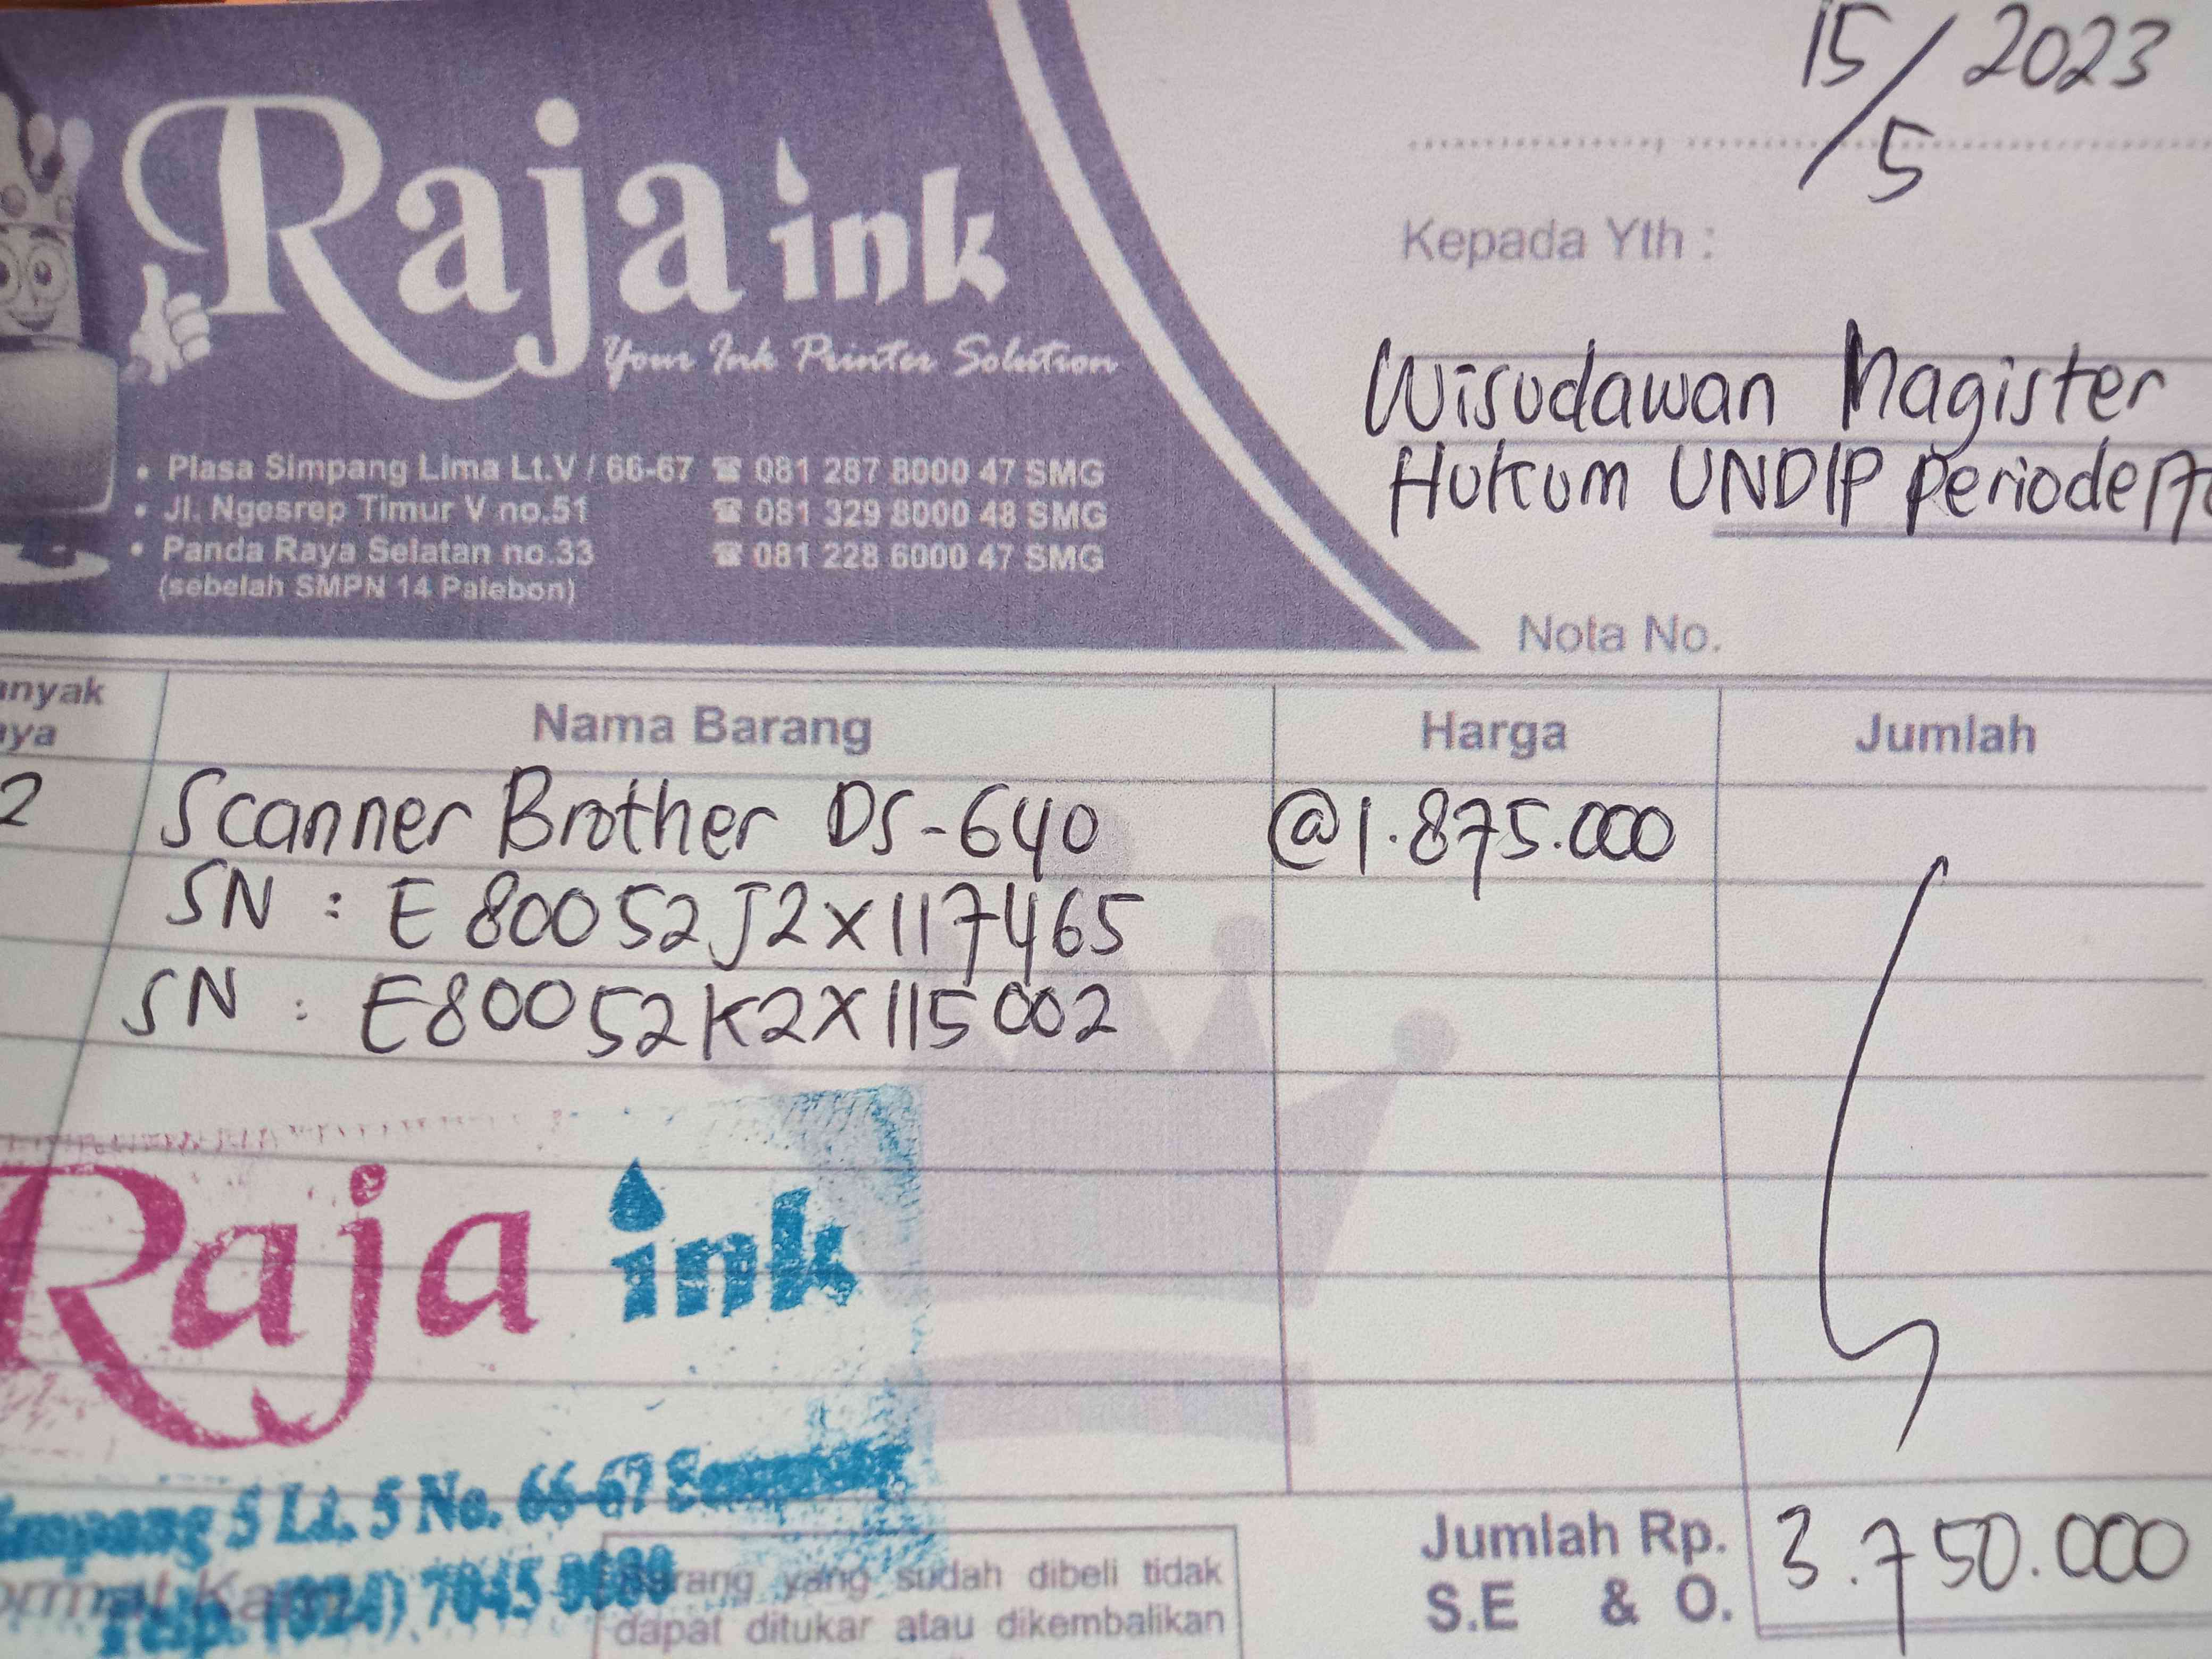 15/5 2023
Raja ink
Your Ink Printer Solution
Kepada Yth :
Wisudawan Magister
Hukum UNDIP Periode
• Plasa Simpang Lima Lt.V / 66-67 ☎ 081 287 8000 47 SMG
• Jl. Ngesrep Timur V no.51 ☎ 081 329 8000 48 SMG
• Panda Raya Selatan no.33 ☎ 081 228 6000 47 SMG
(sebelah SMPN 14 Palebon)
Nota No.
anyak
nya
Nama Barang
Harga
Jumlah
2 Scanner Brother DS-640 @1.875.000
SN : E80052J2X117465
SN : E80052K2X115002
Raja ink
impang 5 Lt. 5 No. 66-67 Semarang
Telp. (024) 7045
ormat Kami
Barang yang sudah dibeli tidak
dapat ditukar atau dikembalikan
Jumlah Rp. 3.750.000
S.E & O.